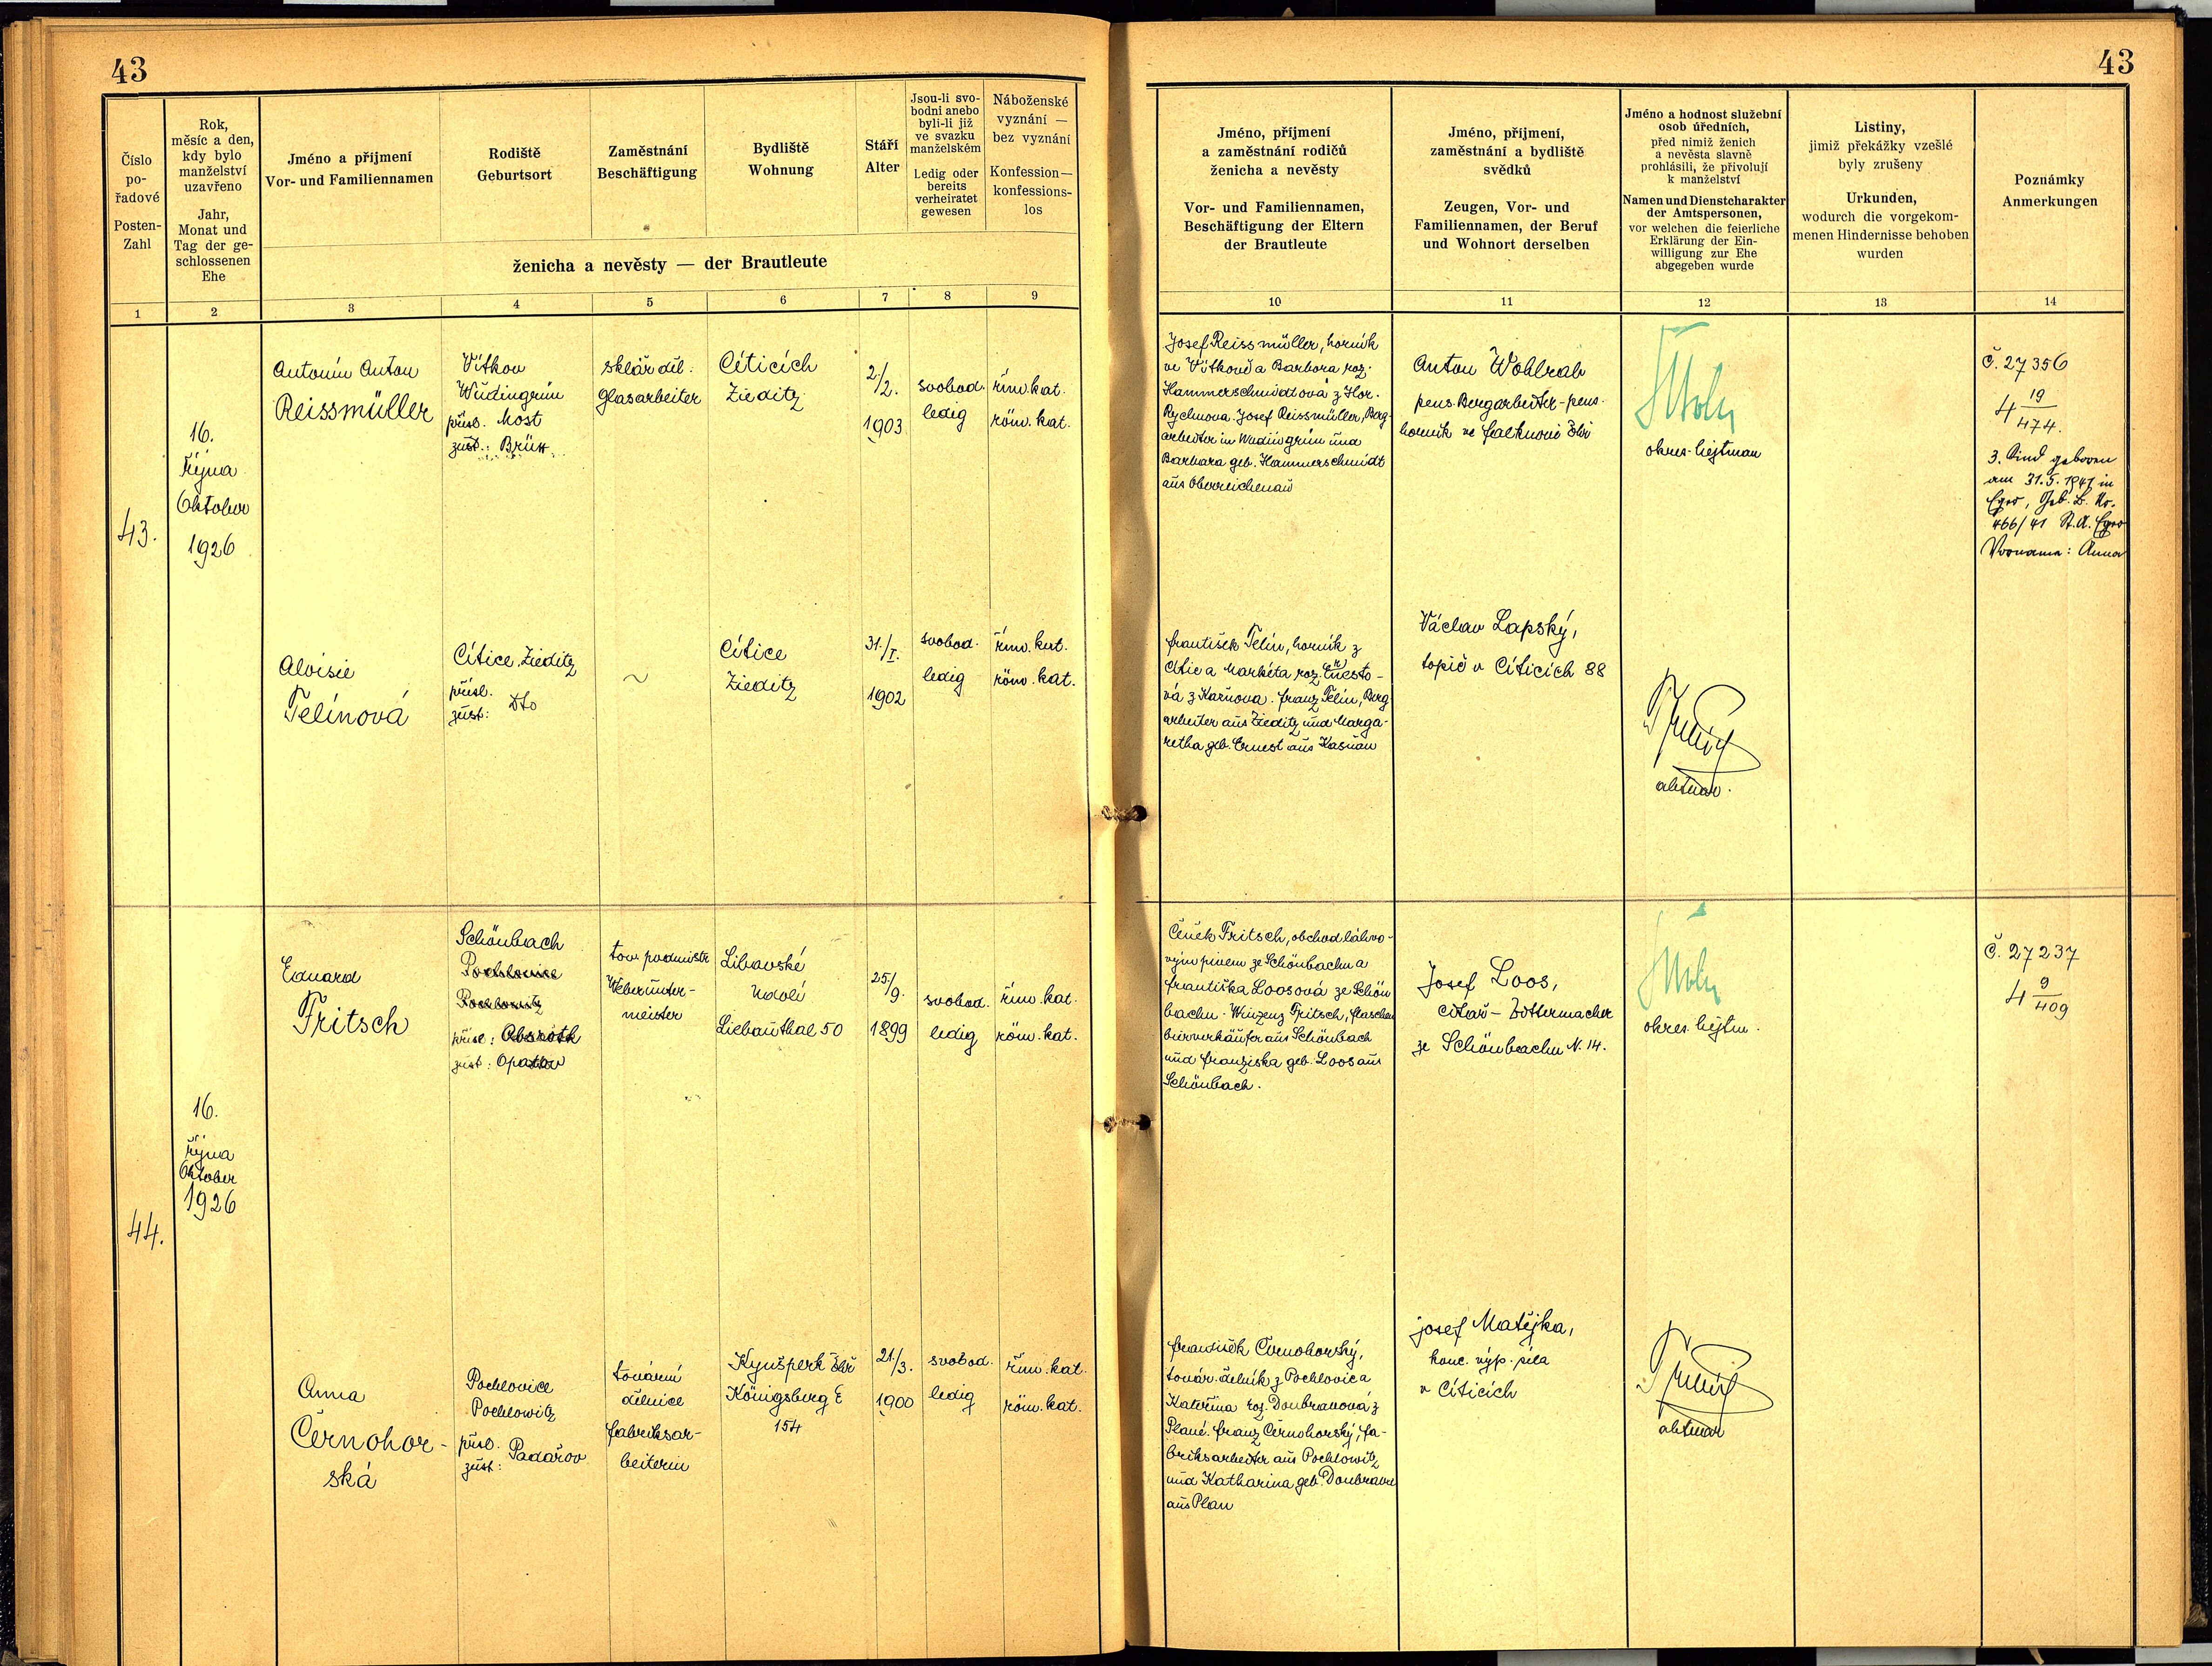 43
43
Číslo
po-
řadové
Posten-
Zahl
Rok,
měsíc a den,
kdy bylo
manželství
uzavřeno
Jahr,
Monat und
Tag der ge-
schlossenen
Ehe
Jméno a příjmení
Vor- und Familiennamen
Rodiště
Geburtsort
Zaměstnání
Beschäftigung
Bydliště
Wohnung
Stáří
Alter
Jsou-li svo-
bodni anebo
byli-li již
ve svazku
manželském
Ledig oder
bereits
verheiratet
gewesen
Náboženské
vyznání —
bez vyznání
Konfession—
konfessions-
los
ženicha a nevěsty — der Brautleute
Jméno, příjmení
a zaměstnání rodičů
ženicha a nevěsty
Vor- und Familiennamen,
Beschäftigung der Eltern
der Brautleute
Jméno, příjmení,
zaměstnání a bydliště
svědků
Zeugen, Vor- und
Familiennamen, der Beruf
und Wohnort derselben
Jméno a hodnost služební
osob úředních,
před nimiž ženich
a nevěsta slavně
prohlásili, že přivolují
k manželství
Namen und Dienstcharakter
der Amtspersonen,
vor welchen die feierliche
Erklärung der Ein-
willigung zur Ehe
abgegeben wurde
Listiny,
jimiž překážky vzešlé
byly zrušeny
Urkunden,
wodurch die vorgekom-
menen Hindernisse behoben
wurden
Poznámky
Anmerkungen
1 2 3 4 5 6 7 8 9 10 11 12 13 14
43.
16.
Října
Oktober
1926
Antonín Anton
Reissmüller
Vítkov
Wudingrün
přísl. Most
zust.: Brüx
sklář. děl.
Glasarbeiter
Cíticích
Zieditz
2./2.
1903
svobod.
ledig
řím. kat.
röm. kat.
Josef Reissmüller, horník
ve Vítkově a Barbora roz.
Hammerschmidtová z Hor.
Rychnova. Josef Reissmüller, Berg-
arbeiter in Wudingrün und
Barbara geb. Hammerschmidt
aus Oberreichenau
Anton Wohlrab
pens. Bergarbeiter - pens.
horník ve Falknově
okres. hejtman
Č. 27356
4 19/474.
3. Kind geboren
am 31.5.1941 in
Eger, Geb. B. Nr.
466/41 St.A. Eger
Vorname: Anna
Aloisie
Telínová
Cítice, Zieditz
přísl.
zust: Dto
~
Cítice
Zieditz
31./I.
1902
svobod.
ledig
řím. kat.
röm. kat.
František Telín, horník z
Cític a Markéta roz. Ernesto-
vá z Kašnova. Franz Telín, Berg
arbeiter aus Zieditz und Marga-
retha geb. Ernest aus Kasnau
Václav Lapský,
topič v Cíticích 88
aktuar.
44.
16.
října
Oktober
1926
Eduard
Fritsch
Schönbach
Pochlovice
Pochlowitz
přísl: Absroth
zust: Opatov
tov. podmistr
Weberunter-
meister
Libavské
Údolí
Liebauthal 50
25./9.
1899
svobod.
ledig
řím. kat.
röm. kat.
Čeněk Fritsch, obchod. láhvo-
vým pivem ze Schönbachu a
Františka Loosová ze Schön
bachu. Winzenz Fritsch, Flaschen
bierverkäufer aus Schönbach
und Franziska geb. Loos aus
Schönbach.
Josef Loos,
citař - Zittermacher
ze Schönbachu N. 14.
okres. hejtm.
Č. 27237
4 9/409
Anna
Černohor-
ská
Pochlovice
Pochlowitz
přísl.
zust: Padařov
tovární
dělnice
Fabriksar-
beiterin
Kynšperk
Königsberg E
154
21./3.
1900
svobod.
ledig
řím. kat.
röm. kat.
František Černohorský,
továr. dělník z Pochlovic a
Kateřina roz. Doubravová z
Plané. Franz Černohorský, Fa-
briksarbeiter aus Pochlowitz
und Katharina geb. Doubrava
aus Plan
Josef Matějka,
konc. výp. síla
v Cíticích
aktuar